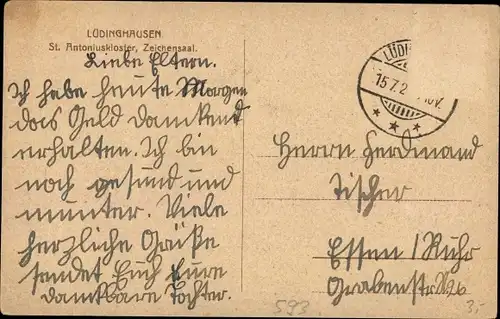 LÜDINGHAUSEN
St. Antoniuskloster, Zeichensaal.
Liebe Eltern.
Ich habe heute Morgen
das Geld dankend
erhalten. Ich bin
noch gesund und
munter. Viele
herzliche Grüße
sendet Euch Eure
dankbare Tochter.
LÜDIN
15.7.2
Nov.
Herrn Ferdinand
Tischer
Essen / Ruhr
Grabenstr.
593
3,-